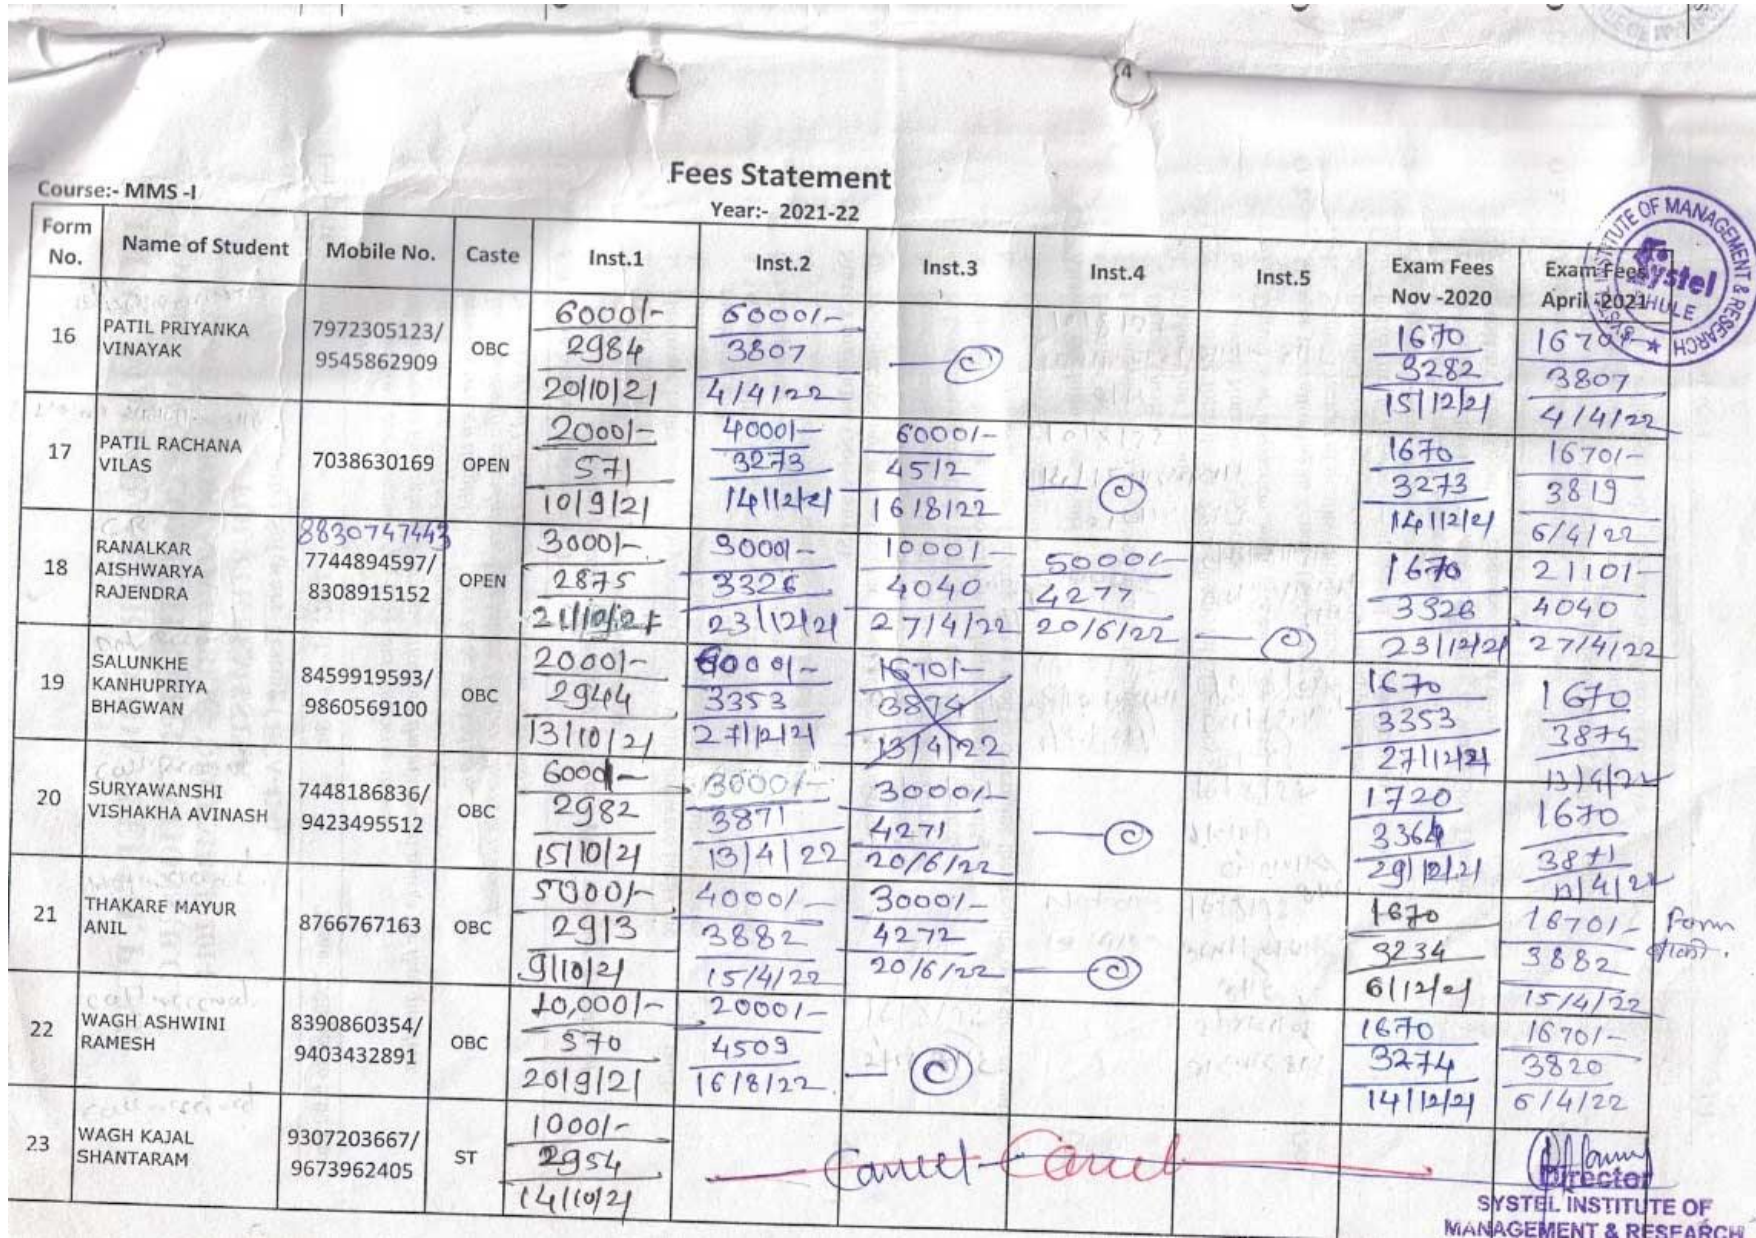 Fees Statement
Course:- MMS -I
Year:- 2021-22
Form No. Name of Student Mobile No. Caste Inst.1 Inst.2 Inst.3 Inst.4 Inst.5 Exam Fees Nov -2020 Exam Fees April -2021
16 PATIL PRIYANKA VINAYAK 7972305123/ 9545862909 OBC 6000/- 2984 20/10/21 6000/- 3807 4/4/22 1670 3282 15/12/21 1670/- 3807 4/4/22
17 PATIL RACHANA VILAS 7038630169 OPEN 2000/- 571 10/9/21 4000/- 3273 14/12/21 6000/- 4512 16/8/22 1670 3273 14/12/21 1670/- 3819 6/4/22
18 RANALKAR AISHWARYA RAJENDRA 8830747443 7744894597/ 8308915152 OPEN 3000/- 2875 3000/- 3326 23/12/21 1000/- 4040 27/4/22 5000/- 4277 20/6/22 1670 3326 23/12/21 2110/- 4040 27/4/22
19 SALUNKHE KANHUPRIYA BHAGWAN 8459919593/ 9860569100 OBC 2000/- 2944 13/10/21 3353 27/12/21 1670/- 3874 13/4/22 1670 3353 27/12/21 1670 3874 13/4/22
20 SURYAWANSHI VISHAKHA AVINASH 7448186836/ 9423495512 OBC 6000/- 2982 15/10/21 3000/- 3871 13/4/22 3000/- 4271 20/6/22 1720 3364 29/12/21 1670 3871 13/4/22
21 THAKARE MAYUR ANIL 8766767163 OBC 5000/- 2913 9/10/21 4000/- 3882 15/4/22 3000/- 4272 20/6/22 1670 3234 6/12/21 1670/- 3882 15/4/22 Form
22 WAGH ASHWINI RAMESH 8390860354/ 9403432891 OBC 10,000/- 570 20/9/21 2000/- 4509 16/8/22 1670 3274 14/12/21 1670/- 3820 6/4/22
23 WAGH KAJAL SHANTARAM 9307203667/ 9673962405 ST 1000/- 2954 14/10/21 Cancel Cancel
Director
SYSTEL INSTITUTE OF
MANAGEMENT & RESEARCH